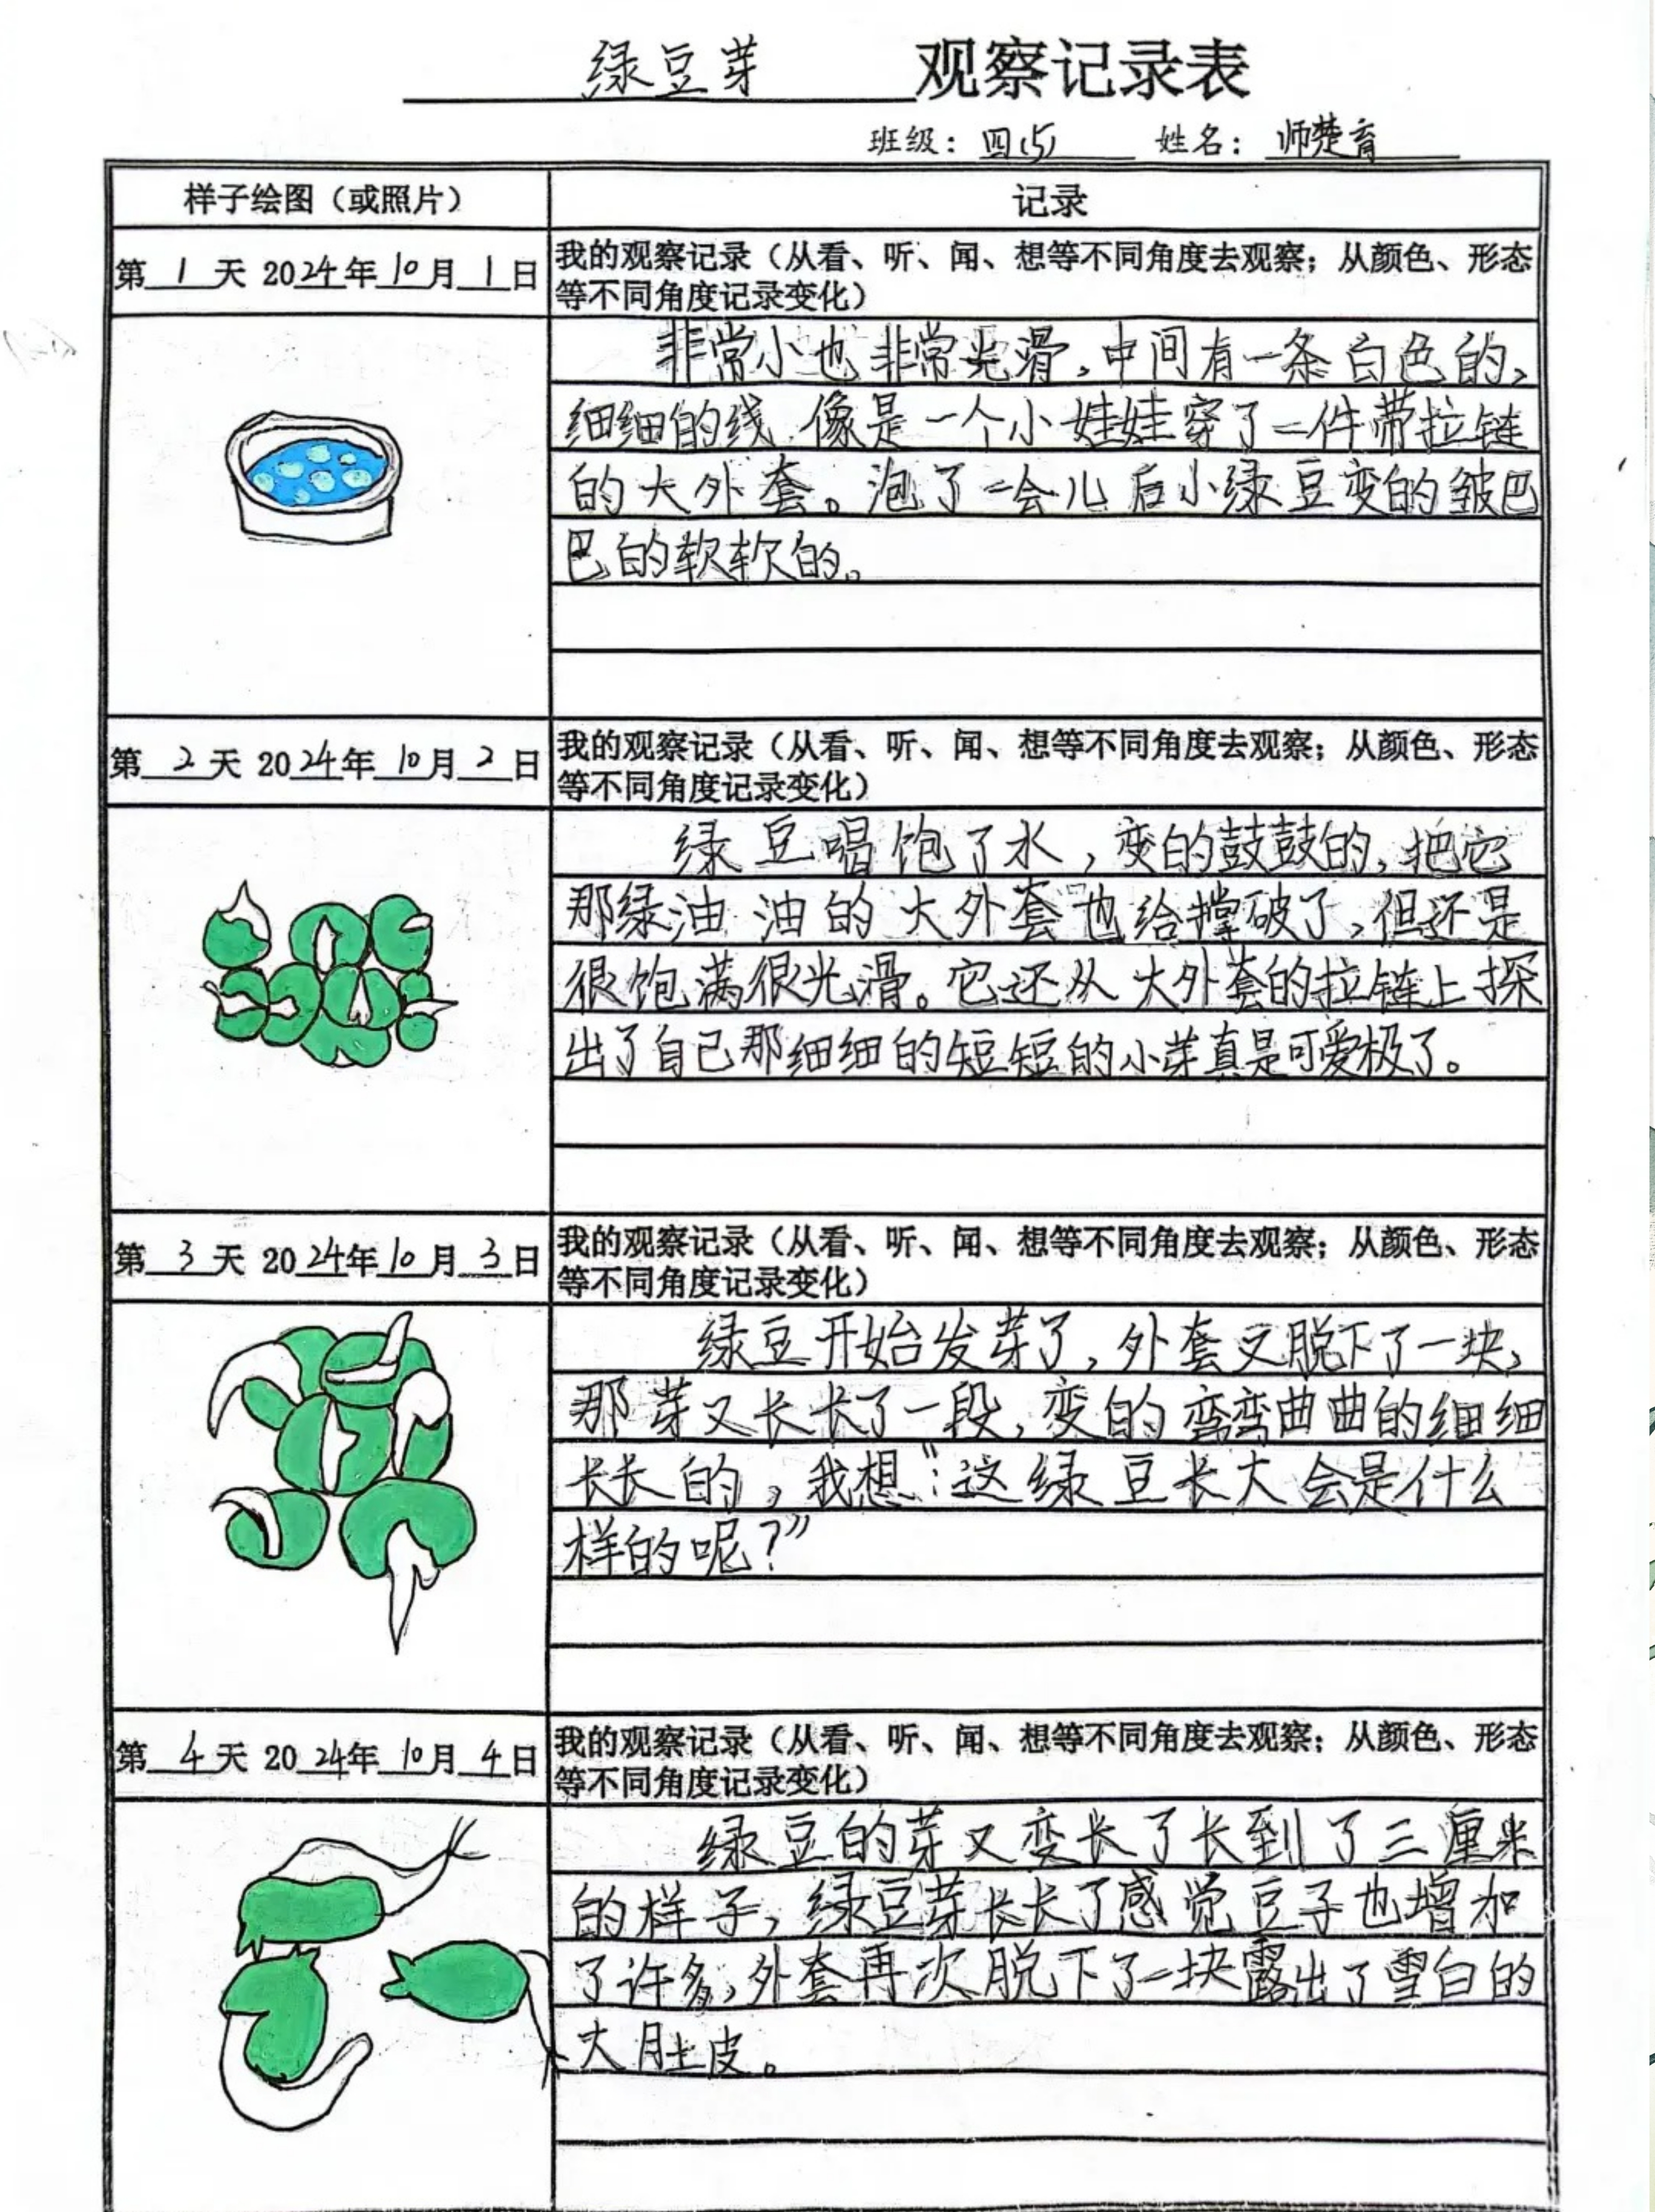 绿豆芽 观察记录表
班级：四(5) 姓名：师楚育
样子绘图（或照片） 记录
第1天 2024年10月1日 我的观察记录（从看、听、闻、想等不同角度去观察；从颜色、形态
等不同角度记录变化）
非常小也非常光滑，中间有一条白色的，
细细的线 像是一个小娃娃穿了一件带拉链
的大外套。泡了一会儿后小绿豆变的皱巴
巴的软软的。
第2天 2024年10月2日 我的观察记录（从看、听、闻、想等不同角度去观察；从颜色、形态
等不同角度记录变化）
绿豆喝饱了水，变的鼓鼓的，把它
那绿油油的大外套也给撑破了，但还是
很饱满很光滑。它还从大外套的拉链上探
出了自己那细细的短短的小芽真是可爱极了。
第3天 2024年10月3日 我的观察记录（从看、听、闻、想等不同角度去观察；从颜色、形态
等不同角度记录变化）
绿豆开始发芽了，外套又脱下了一块，
那芽又长长了一段，变的弯弯曲曲的细细
长长的，我想“：这绿豆长大会是什么
样的呢？”
第4天 2024年10月4日 我的观察记录（从看、听、闻、想等不同角度去观察；从颜色、形态
等不同角度记录变化）
绿豆的芽又变长了长到了三厘米
的样子，绿豆芽长长了感觉豆子也增加
了许多，外套再次脱下了一块露出了雪白的
大肚皮。